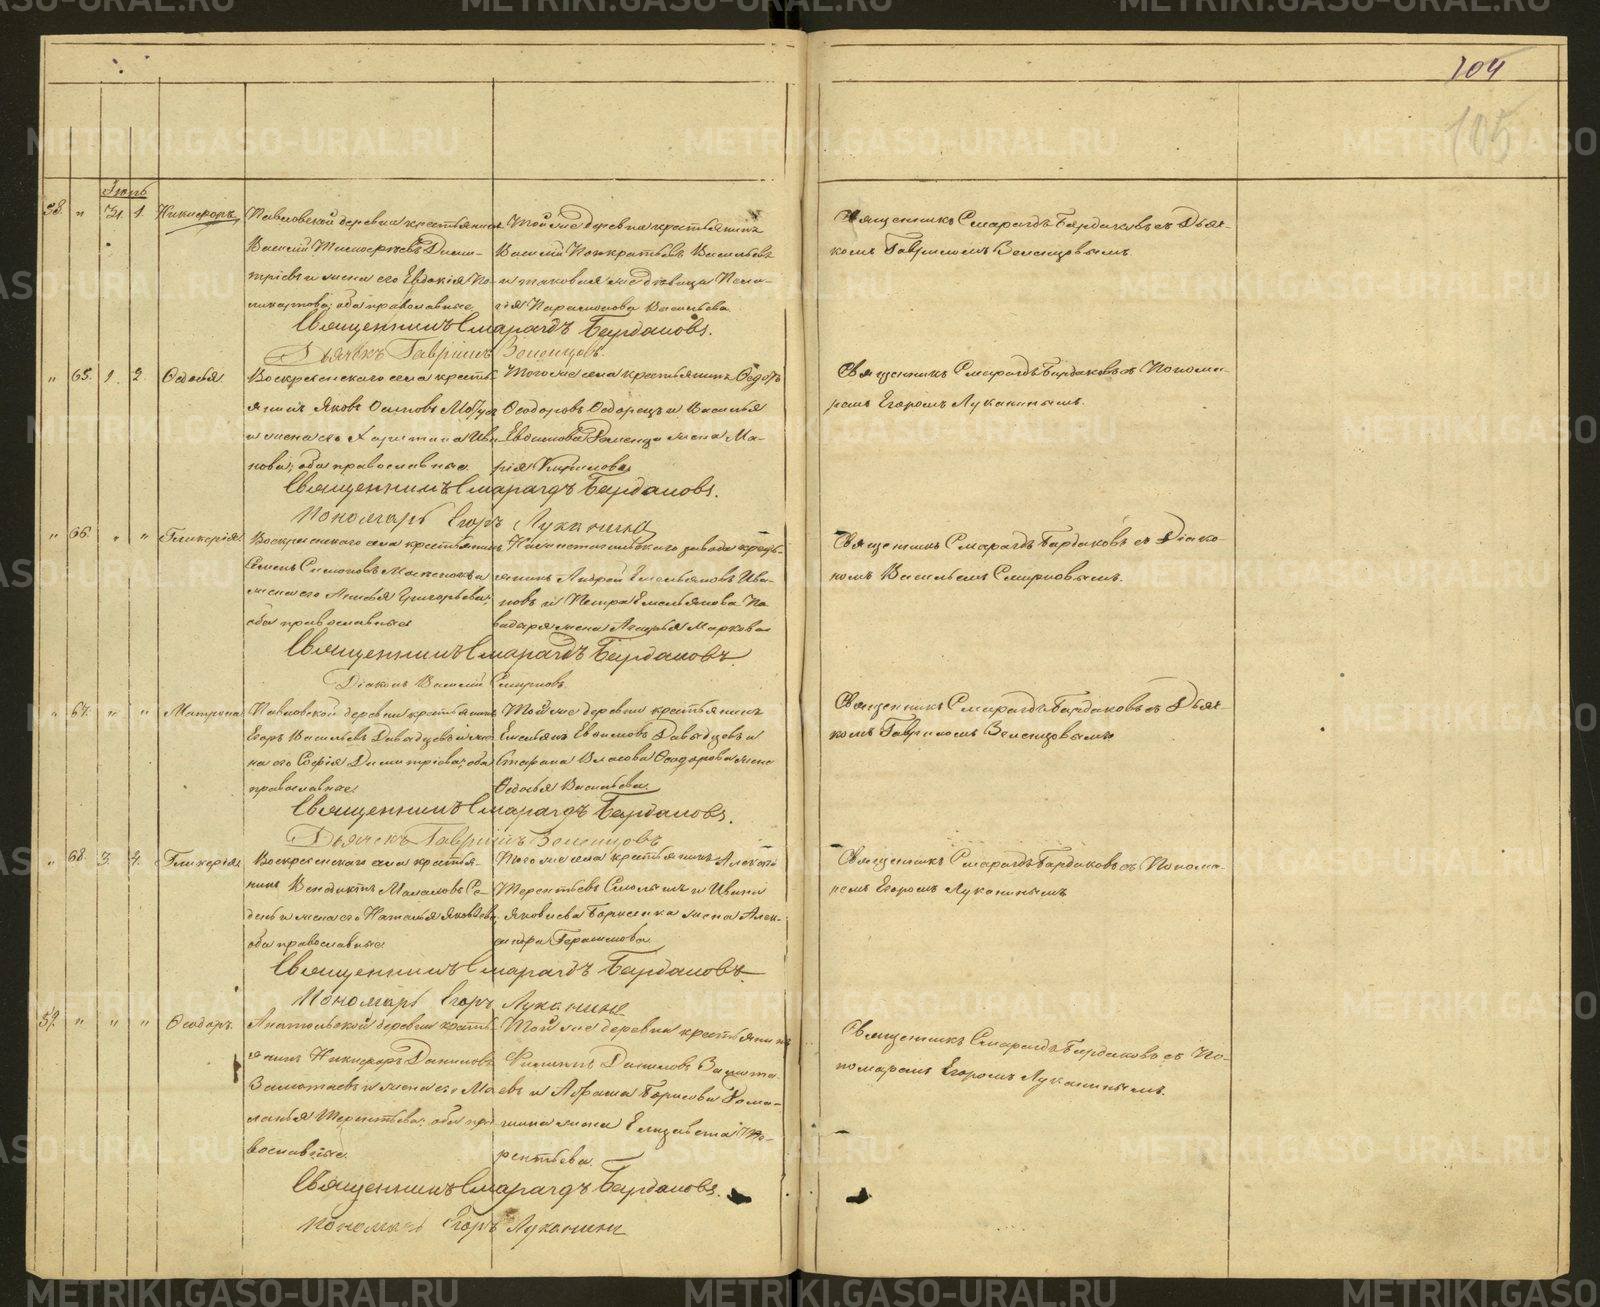 104
105
58. " 31. 1. Никифоръ
Павловской деревни крестьянинъ
Василій Тимофеевъ Дими-
тріевъ и жена его Евдокія По-
ликарпова; оба православные
Той же деревни крестьянинъ
Василій Понкратьевъ Васильевъ
и таковая же девица Пела-
гія Парамонова Васильева
Священникъ Смарагдъ Бардаковъ.
Дьячекъ Гавріилъ Зеленцовъ.
Священникъ Смарагдъ Бардаковъ съ Дьяч-
комъ Гавриломъ Зеленцовымъ.
" 65. 1. 2. Федосья
Воскресенскаго села кресть-
янинъ Яковъ Осиповъ
и жена его Ива-
нова; оба православные
Того же села крестьянинъ Федоръ
Феодоровъ и Василья
Евдокимова жена Ма-
рія Кирилова
Священникъ Смарагдъ Бардаковъ.
Пономарь Егоръ Луканинъ
Священникъ Смарагдъ Бардаковъ съ Понома-
ремъ Егоромъ Луканинымъ.
" 66. " " Гликерія
Воскресенскаго села крестьянинъ
Семенъ и
жена его Григорьева;
оба православные
завода кресть-
янинъ Андрей Емельяновъ Ива-
новъ и Петра Емельянова
жена Маркова
Священникъ Смарагдъ Бардаковъ.
Діаконъ Василій Смирновъ.
Священникъ Смарагдъ Бардаковъ съ Діако-
номъ Васильемъ Смирновымъ.
" 67. " " Матрона
Павловской деревни крестьянинъ
Егоръ Васильевъ Давыдцевъ и же-
на его Софія Димитріева; оба
православные
Той же деревни крестьянинъ
Емельянъ Евдокимовъ Давыдцевъ и
Власова Феодорова жена
Федосья Васильева.
Священникъ Смарагдъ Бардаковъ.
Дьячекъ Гавріилъ Зеленцовъ
Священникъ Смарагдъ Бардаковъ съ Дьяч-
комъ Гавриломъ Зеленцовымъ
" 68. 3. 4. Гликерія
Воскресенскаго села кресть-
янинъ
и жена его Наталья Яковлева,
оба православные
Того же села крестьянинъ Алексей
Терентьевъ и Ивана
Яковлева жена Алек-
сандра Герасимова
Священникъ Смарагдъ Бардаковъ
Пономарь Егоръ Луканинъ
Священникъ Смарагдъ Бардаковъ съ Понома-
ремъ Егоромъ Луканинымъ
59. " " " Феодоръ
Анатольской деревни кресть-
янинъ Никифоръ Даниловъ
и жена его Ма-
ланья Терентьева; оба пра-
вославные.
Той же деревни крестьянинъ
Филиппъ Даниловъ
и Борисова
жена Елизавета Те-
рентьева.
Священникъ Смарагдъ Бардаковъ.
Пономарь Егоръ Луканинъ
Священникъ Смарагдъ Бардаковъ съ По-
номаремъ Егоромъ Луканинымъ.
METRIKI.GASO-URAL.RU